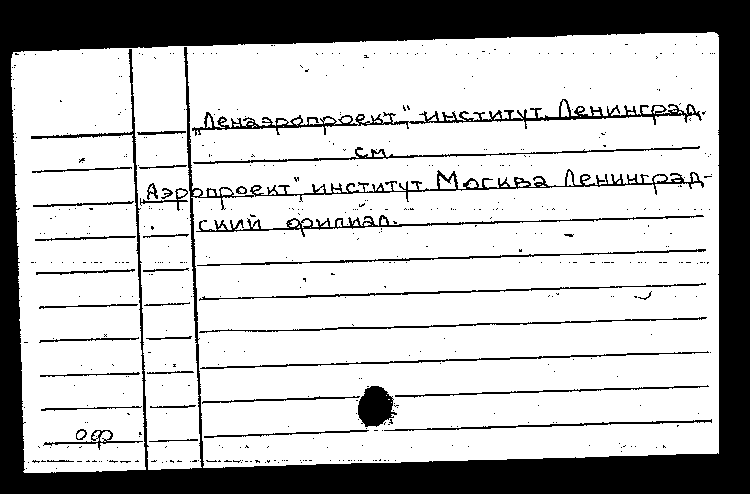 „Ленаэропроект", институт. Ленинград.
см.
„Аэропроект", институт Москва Ленинград-
ский филиал.
оф